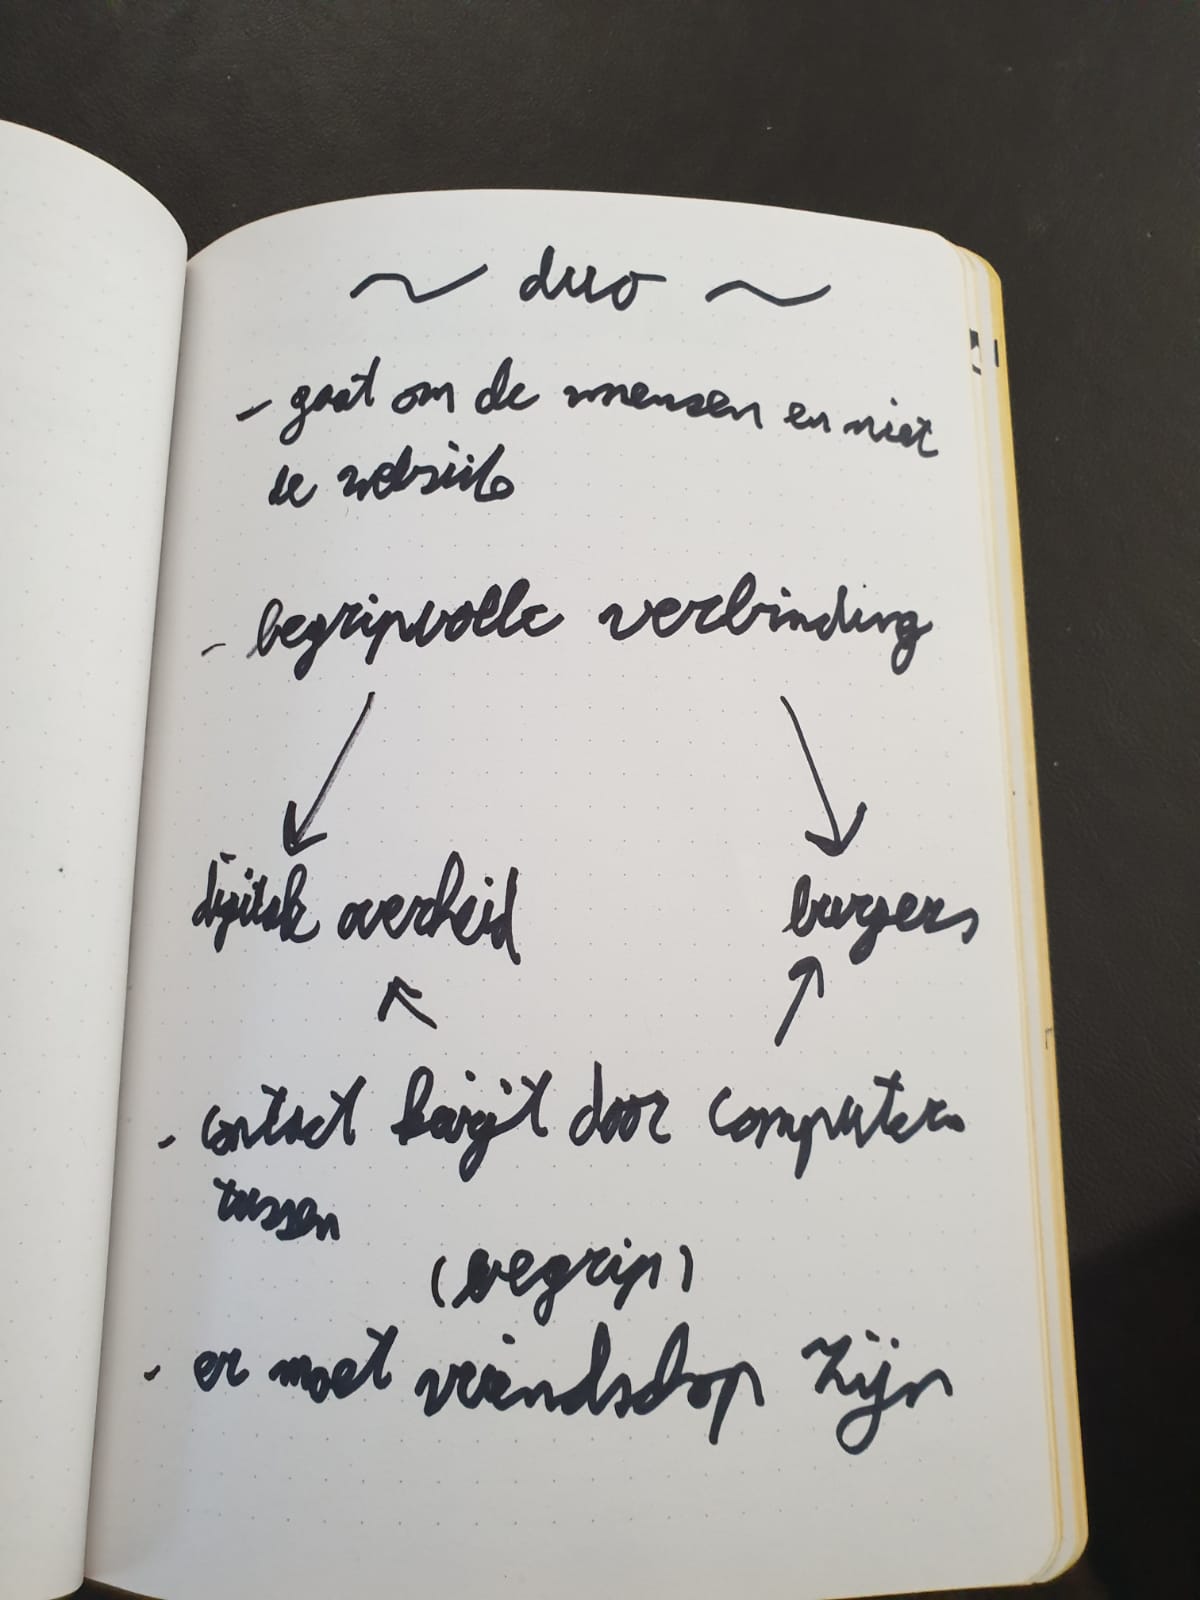 ~ duo ~
- gaat om de mensen en niet
de website
- begripvolle verbinding
digitale overheid
burgers
- contact krijgt door computers
tussen
(begrip)
- er moet vriendschap zijn